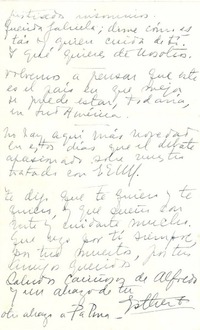 Querida Gabriela; dime cómo es
tás y quien cuida de ti.
Y qué quieres de nosotros.
Volvemos a pensar que este
es el país en que mejor
se puede estar, todavía,
en Sud América.
No hay aquí más novedad
en estos días que el debate
apasionado sobre nuestro
tratado con EEUU.
Te dejo que te quiero y te
, y que cuentes con
y cuidarte mucho.
Que ruego por ti siempre,
por tus muertos, por tus
queridos
Saludos cariñosos de Alfredo
y un abrazo de tu
Esther
otro abrazo a Palma